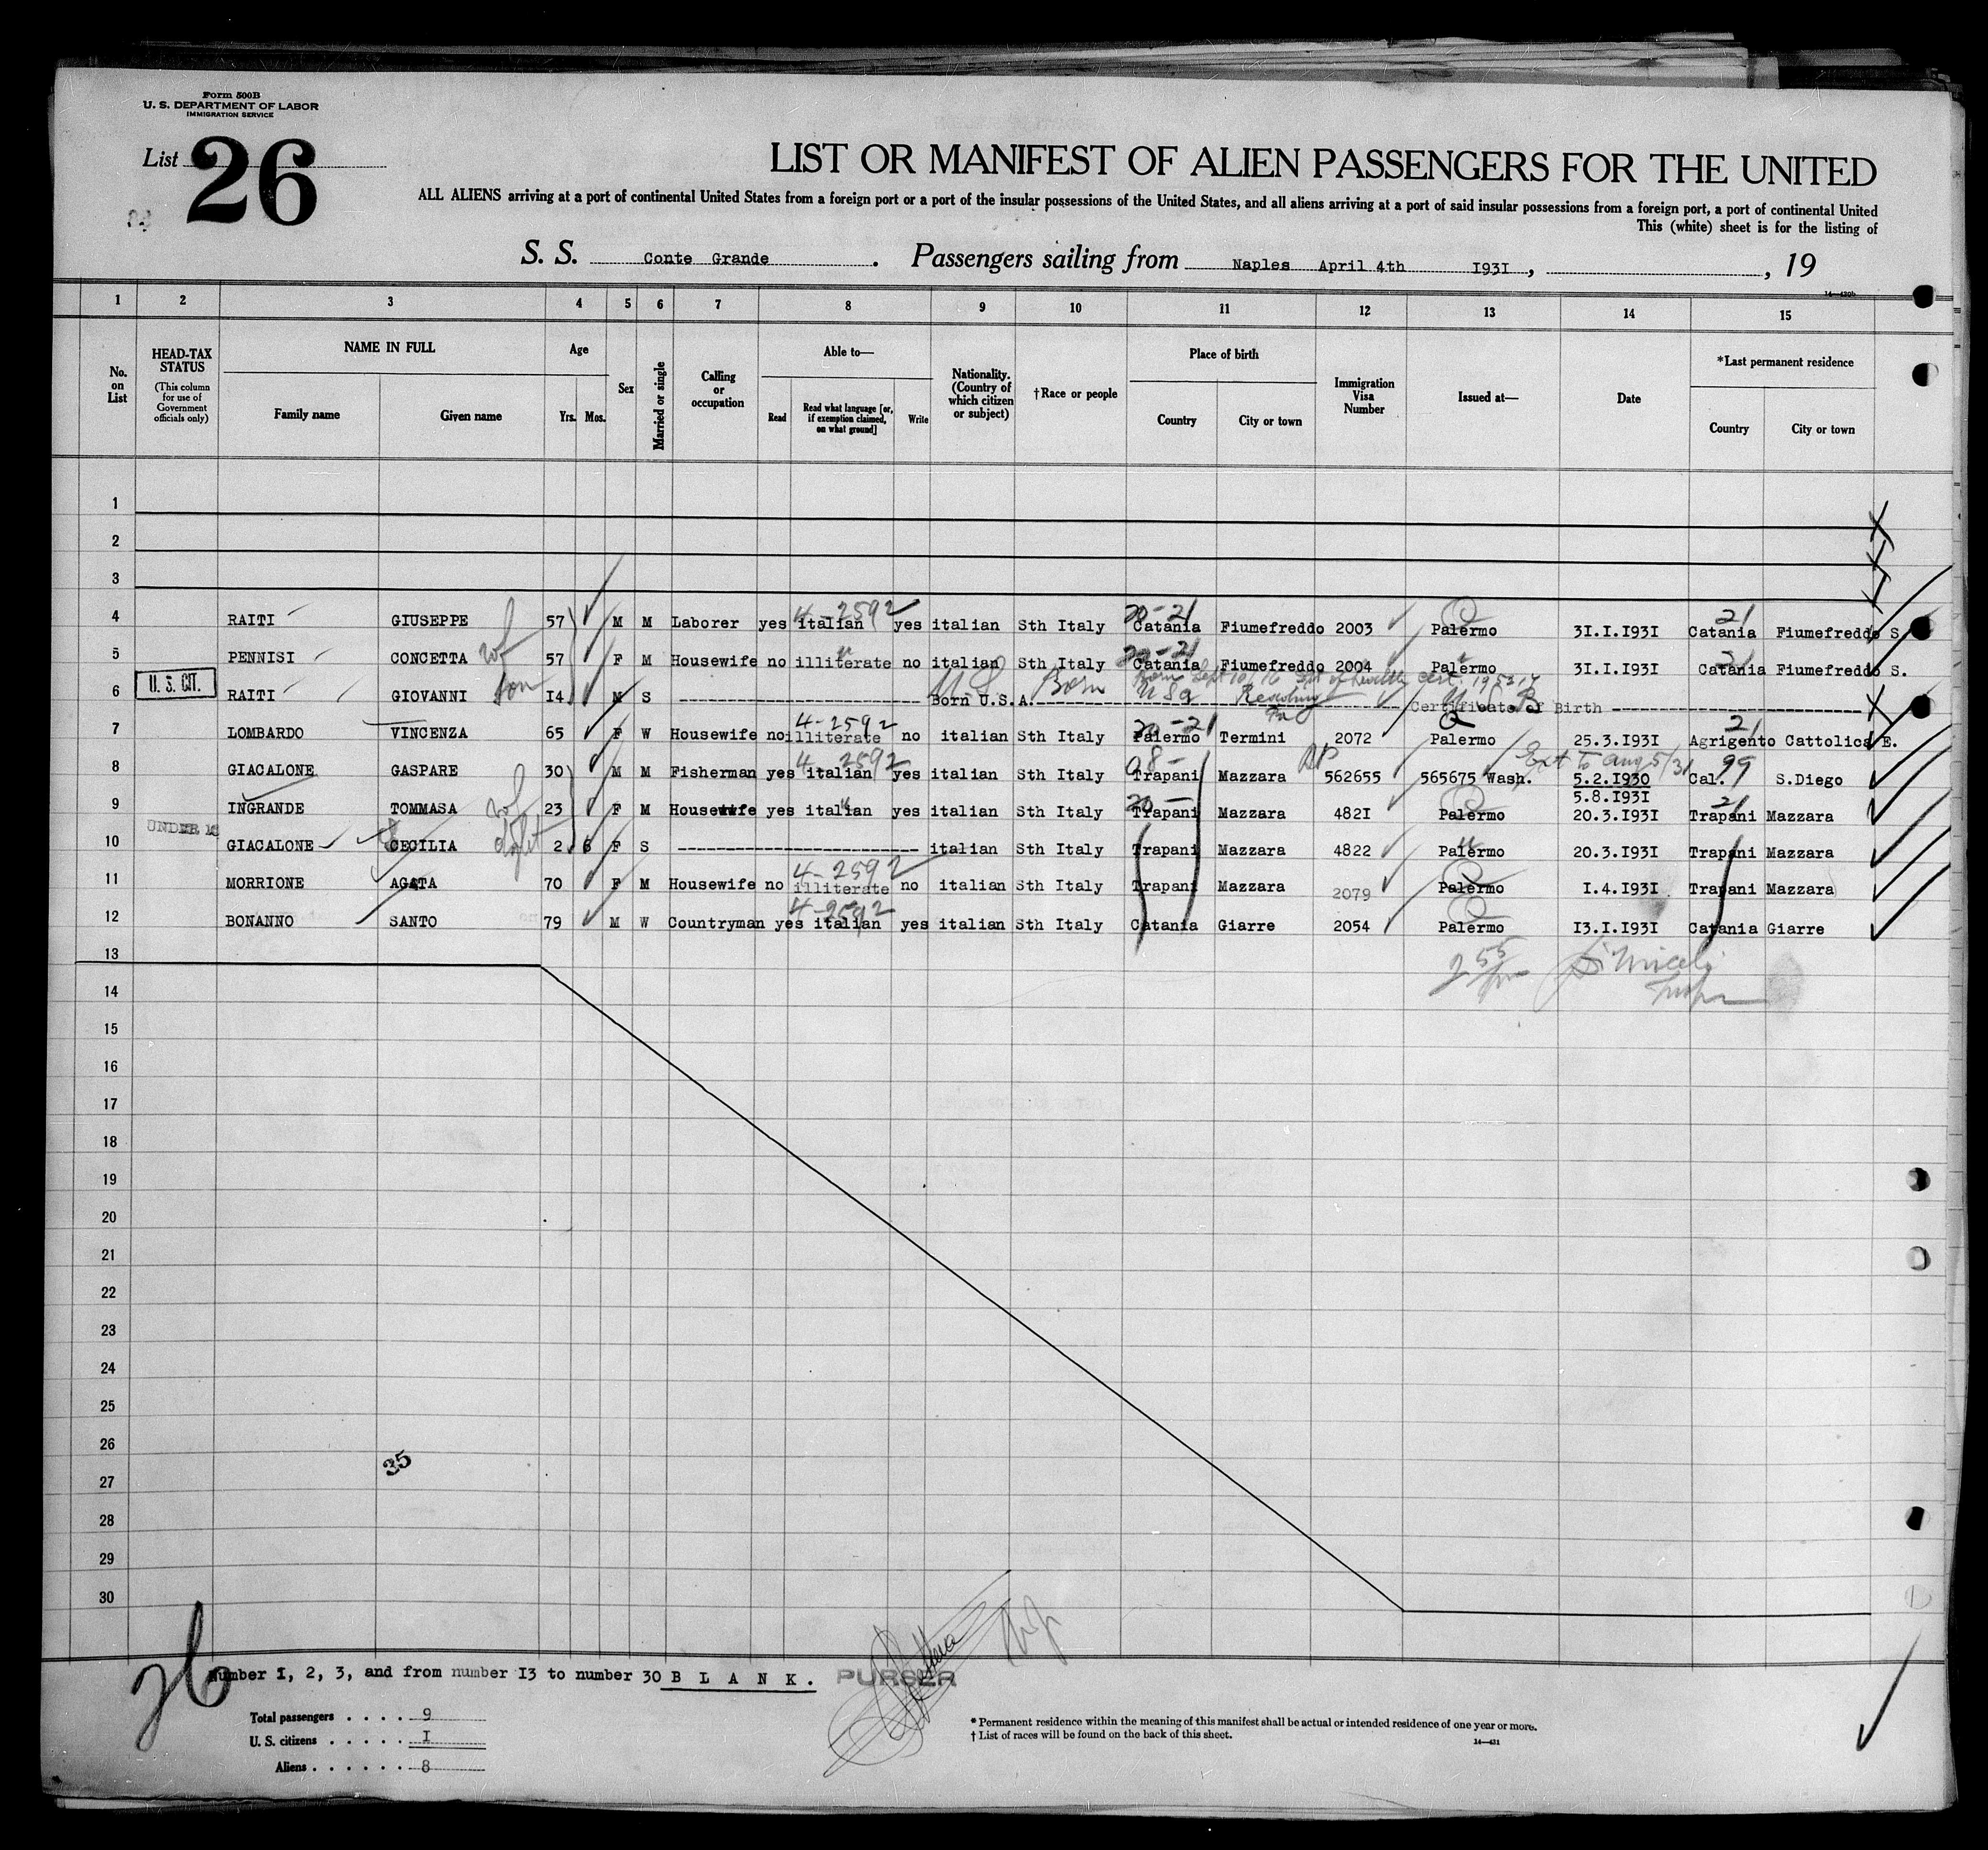 Form 500B
U. S. DEPARTMENT OF LABOR
IMMIGRATION SERVICE
List 26
LIST OR MANIFEST OF ALIEN PASSENGERS FOR THE UNITED
ALL ALIENS arriving at a port of continental United States from a foreign port or a port of the insular possessions of the United States, and all aliens arriving at a port of said insular possessions from a foreign port, a port of continental United
This (white) sheet is for the listing of
S. S. Conte Grande. Passengers sailing from Naples April 4th I93I, , 19
14—420b
1 2 3 4 5 6 7 8 9 10 11 12 13 14 15
No. on List
HEAD-TAX STATUS (This column for use of Government officials only)
NAME IN FULL
Family name Given name
Age
Yrs. Mos.
Sex
Married or single
Calling or occupation
Able to—
Read Read what language [or, if exemption claimed, on what ground] Write
Nationality. (Country of which citizen or subject)
†Race or people
Place of birth
Country City or town
Immigration Visa Number
Issued at—
Date
*Last permanent residence
Country City or town
1
2
3
4-2592 20-21 21
4 RAITI GIUSEPPE 57 M M Laborer yes italian yes italian Sth Italy Catania Fiumefreddo 2003 Palermo 3I.I.I93I Catania Fiumefreddo S.
wf 21
5 PENNISI CONCETTA 57 F M Housewife no illiterate no italian Sth Italy Catania Fiumefreddo 2004 Palermo 3I.I.I93I Catania Fiumefreddo S.
U. S. CIT. son U.S. Born USA
6 RAITI GIOVANNI I4 M S Born U.S.A. Certificate of Birth
4-2592 20-21 21
7 LOMBARDO VINCENZA 65 F W Housewife no illiterate no italian Sth Italy Palermo Termini 2072 Palermo 25.3.I93I Agrigento Cattolica E.
4-2592 RP Ext to Aug 5/31 99
8 GIACALONE GASPARE 30 M M Fisherman yes italian yes italian Sth Italy Trapani Mazzara 562655 565675 Wash. 5.2.I930 Cal. S.Diego
5.8.I93I
wf 20- 21
9 INGRANDE TOMMASA 23 F M Housewife yes italian yes italian Sth Italy Trapani Mazzara 482I Palermo 20.3.I93I Trapani Mazzara
UNDER 16
10 GIACALONE CECILIA 2 6 F S italian Sth Italy Trapani Mazzara 4822 Palermo 20.3.I93I Trapani Mazzara
4-2592
11 MORRIONE AGATA 70 F M Housewife no illiterate no italian Sth Italy Trapani Mazzara 2079 Palermo I.4.I93I Trapani Mazzara
4-2592
12 BONANNO SANTO 79 M W Countryman yes italian yes italian Sth Italy Catania Giarre 2054 Palermo I3.I.I93I Catania Giarre
13
14
15
16
17
18
19
20
21
22
23
24
25
26
35
27
28
29
30
26
Number I, 2, 3, and from number I3 to number 30 B L A N K.
PURSER
Total passengers . . . . 9
U. S. citizens . . . . . I
Aliens . . . . . . 8
* Permanent residence within the meaning of this manifest shall be actual or intended residence of one year or more.
† List of races will be found on the back of this sheet.
14—421